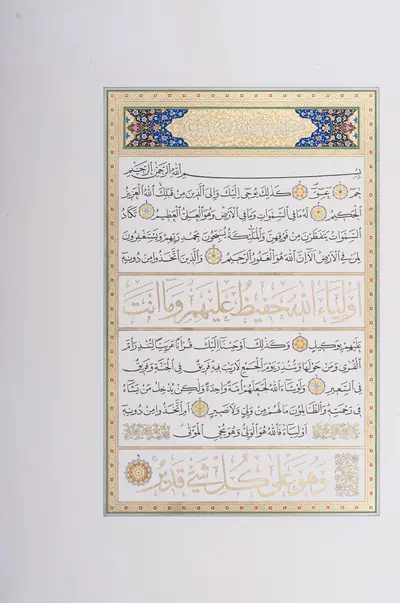 بِسْمِ اللهِ الرَّحْمٰنِ الرَّحِيمِ
حٰمٓ عٓسٓقٓ كَذٰلِكَ يُوحِى اِلَيْكَ وَاِلَى الَّذِينَ مِنْ قَبْلِكَ اللهُ الْعَزِيزُ
الْحَكِيمُ لَهُ مَا فِى السَّمٰوَاتِ وَمَا فِى الْاَرْضِ وَهُوَ الْعَلِىُّ الْعَظِيمُ تَكَادُ
السَّمٰوَاتُ يَتَفَطَّرْنَ مِنْ فَوْقِهِنَّ وَالْمَلٰئِكَةُ يُسَبِّحُونَ بِحَمْدِ رَبِّهِمْ وَيَسْتَغْفِرُونَ
لِمَنْ فِى الْاَرْضِ اَلَا اِنَّ اللهَ هُوَ الْغَفُورُ الرَّحِيمُ وَالَّذِينَ اتَّخَذُوا مِنْ دُونِهِ
اَوْلِيَاءَ اللهُ حَفِيظٌ عَلَيْهِمْ وَمَا اَنْتَ
عَلَيْهِمْ بِوَكِيلٍ وَكَذٰلِكَ اَوْحَيْنَا اِلَيْكَ قُرْاٰنًا عَرَبِيًّا لِتُنْذِرَ اُمَّ
الْقُرٰى وَمَنْ حَوْلَهَا وَتُنْذِرَ يَوْمَ الْجَمْعِ لَا رَيْبَ فِيهِ فَرِيقٌ فِى الْجَنَّةِ وَفَرِيقٌ
فِى السَّعِيرِ وَلَوْ شَاءَ اللهُ لَجَعَلَهُمْ اُمَّةً وَاحِدَةً وَلٰكِنْ يُدْخِلُ مَنْ يَشَاءُ
فِى رَحْمَتِهِ وَالظَّالِمُونَ مَا لَهُمْ مِنْ وَلِىٍّ وَلَا نَصِيرٍ اَمِ اتَّخَذُوا مِنْ دُونِهِ
اَوْلِيَاءَ فَاللهُ هُوَ الْوَلِىُّ وَهُوَ يُحْيِى الْمَوْتٰى
وَهُوَ عَلٰى كُلِّ شَىْءٍ قَدِيرٌ